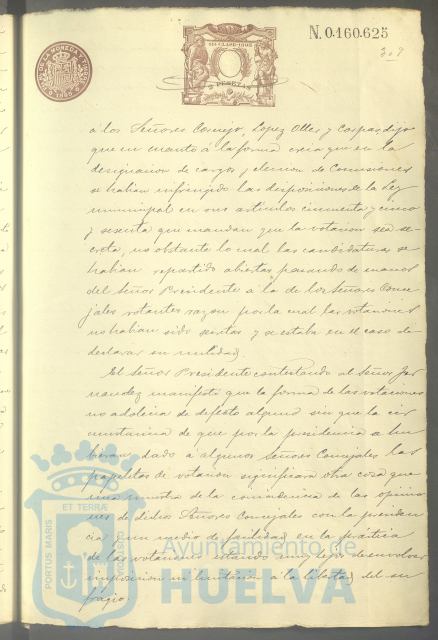 N.0.160.625
309
11ª CLASE-1895
2 PESETAS
á los Señores Cornejo, Lopez Otles y Caspas dijo
que en cuanto á la forma creia que en la
designacion de cargos y eleccion de Comisiones
se habian infringido las disposiciones de la Ley
municipal en sus articulos cincuenta y cinco
y sesenta que mandan que la votacion sea se-
creta, no obstante lo cual las candidaturas se
habian repartido abiertas pasando de manos
del Señor Presidente á la de los Señores Conce-
jales votantes razon por la cual las votaciones
no habian sido secretas y se estaba en el caso de
declarar su nulidad.
El Señor Presidente contestando al Señor Jer
nandez manifestó que la forma de las votaciones
no adolecia de defecto alguno sin que la cir
cunstancia de que por la presidencia se hu
bieran dado á algunos Señores Concejales las
papeletas de votacion significara otra cosa que
una muestra de la coincidencia de las opinio
nes de dichos Señores Concejales con la presiden
cia y un medio de facilidad en la práctica
de las votaciones
imposicion ni limitacion á la libertad del su
fragio.
PORTUS MARIS ET TERRAE CUSTODIA
Ayuntamiento de
HUELVA